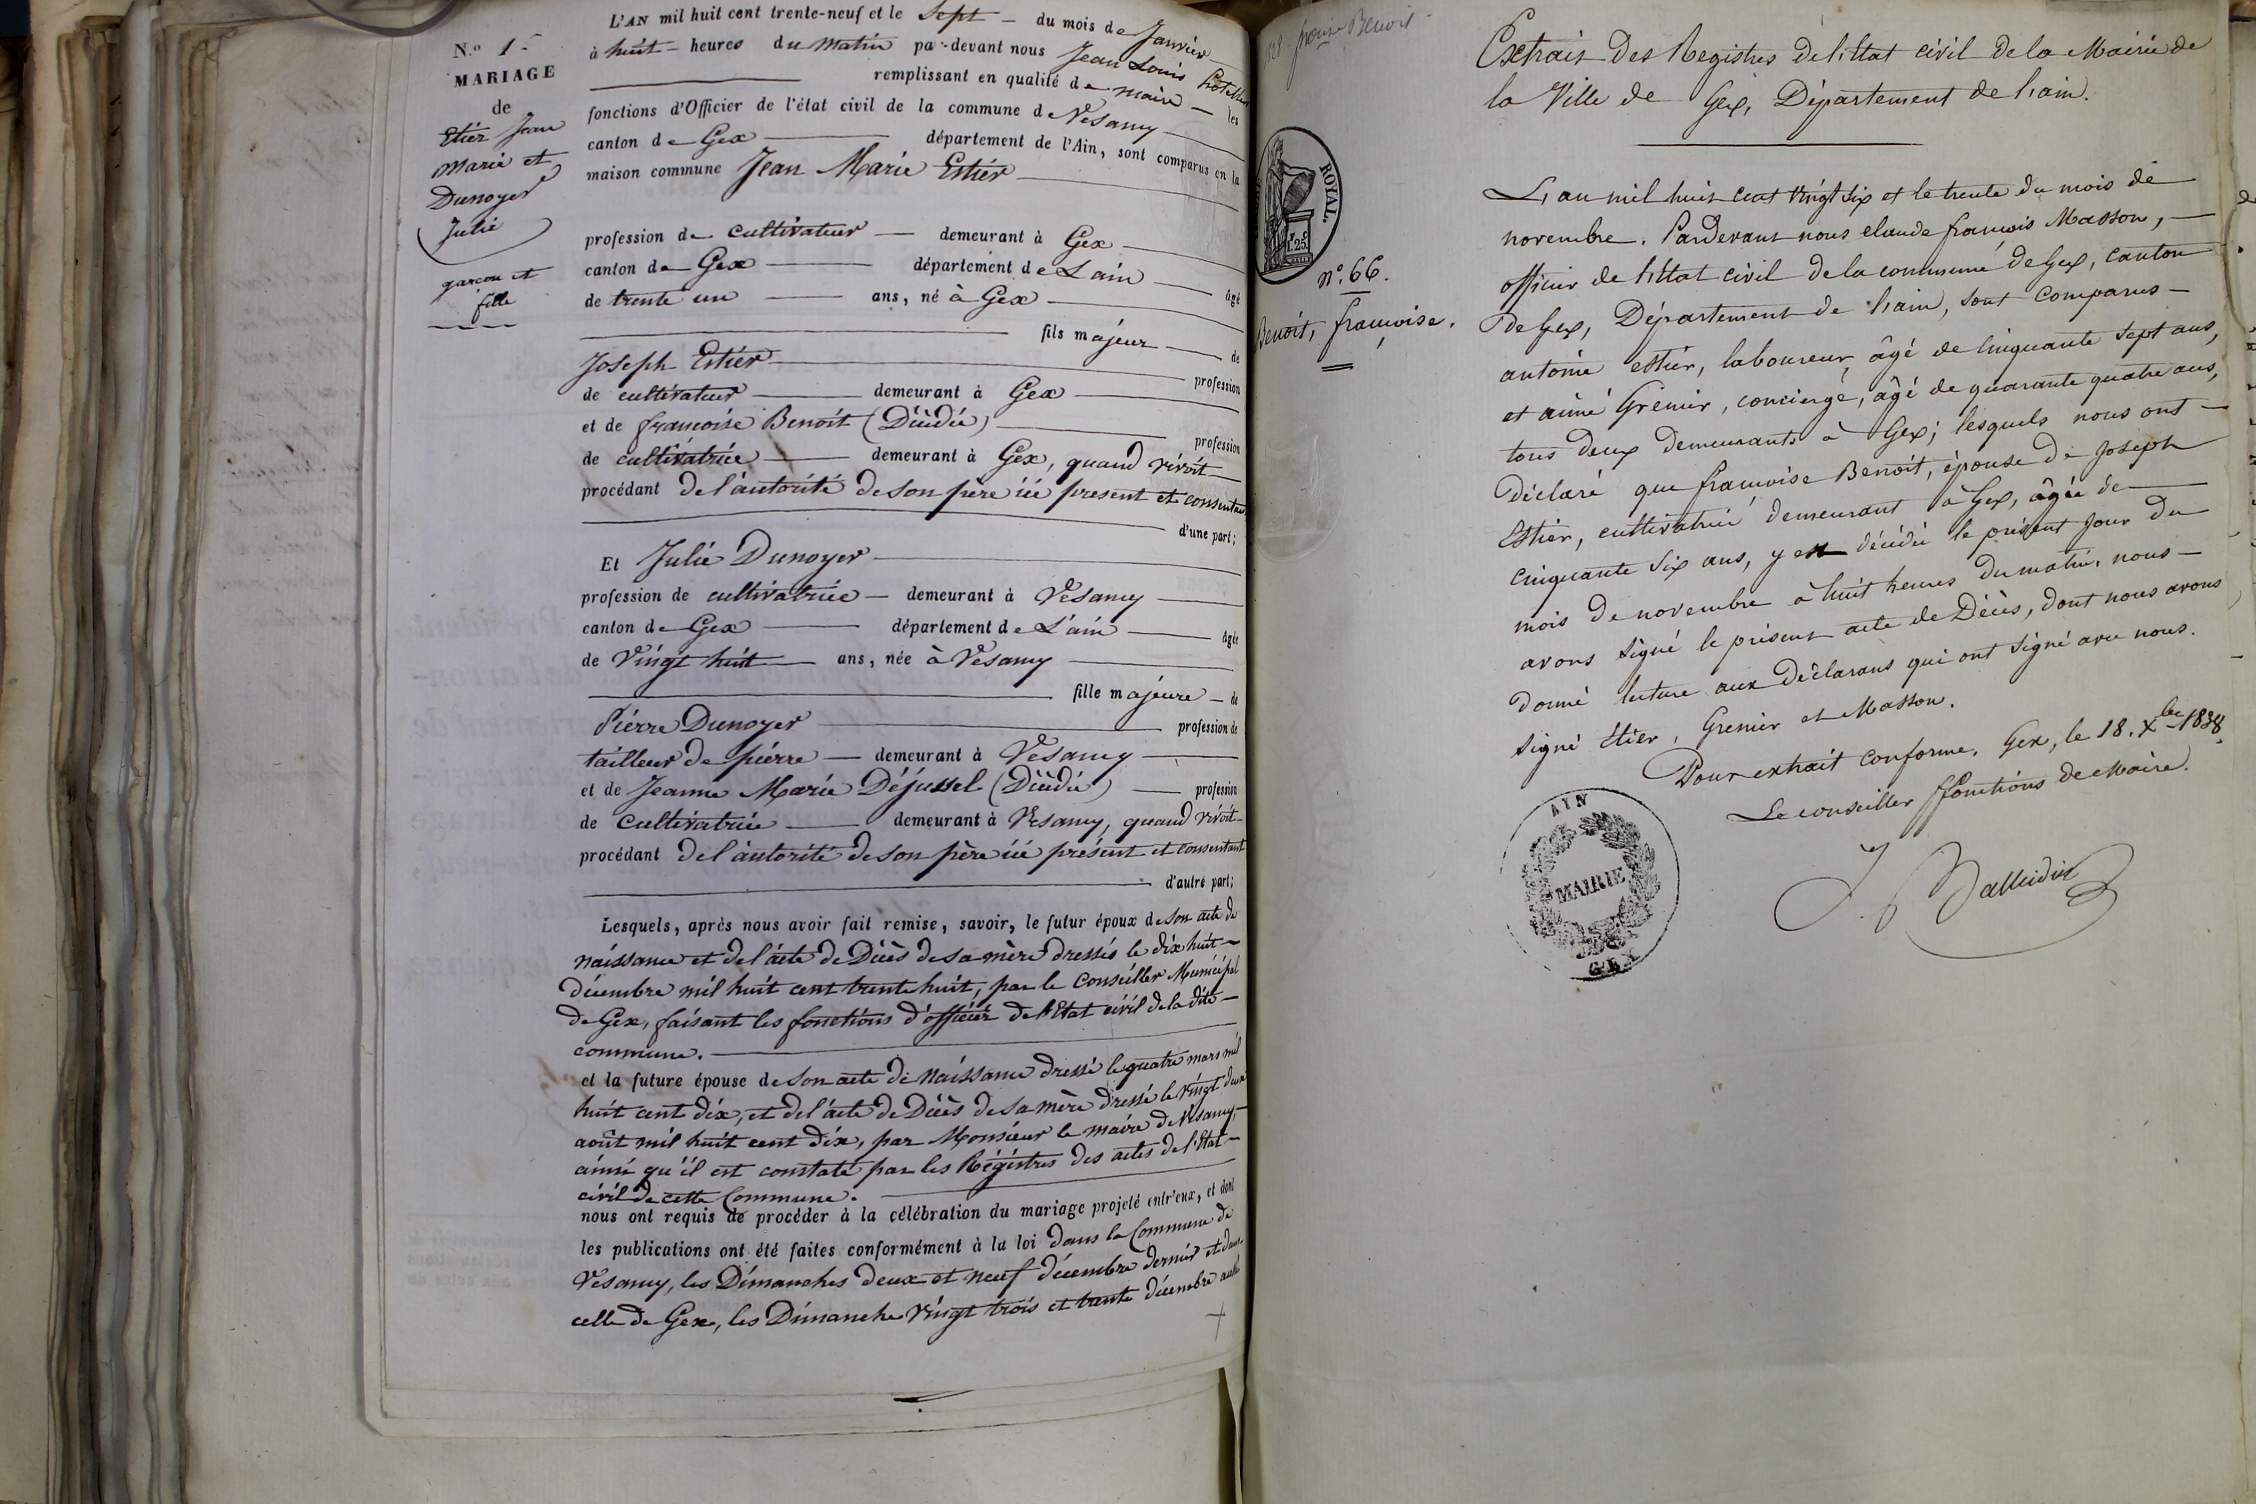 N.o 1.
MARIAGE
de
Etier Jean
Marie et
Dunoyer
Julie
garcon et
fille
L'AN mil huit cent trente-neuf et le Sept du mois de Janvier
à huit heures du matin par-devant nous Jean Louis
remplissant en qualité de maire les
fonctions d'Officier de l'état civil de la commune de Vesancy
canton de Gex département de l'Ain, sont comparus en la
maison commune Jean Marie Estier
profession de cultivateur demeurant à Gex
canton de Gex département de L'ain âgé
de trente un ans, né à Gex
fils majeur de
Joseph Estier profession
de cultivateur demeurant à Gex
et de francoise Benoit (Décédée) profession
de cultivatrice demeurant à Gex, quand vivoit
procédant de l'autorité de son père ici present et consentant
d'une part;
Et Julie Dunoyer
profession de cultivatrice demeurant à Vesancy
canton de Gex département de L'ain âgée
de Vingt huit ans, née à Vesancy
fille majeure de
Pierre Dunoyer profession de
tailleur de pierre demeurant à Vesancy
et de Jeanne Marie Déjussel (Décédée) profession
de Cultivatrice demeurant à Vesancy, quand vivoit
procédant de l'autorité de son père ici présent et consentant
d'autre part;
Lesquels, après nous avoir fait remise, savoir, le futur époux de son acte de
naissance et de l'acte de Décès de sa mère dressés le dix huit
décembre mil huit cent trente huit, par le Conseiller Municipal
de Gex, faisant les fonctions d'officier de l'Etat civil de la dite
commune.
et la future épouse de son acte de Naissance dressé le quatre mars mil
huit cent dix, et de l'acte de Décès de sa mère dressé le vingt deux
août mil huit cent dix, par Monsieur le maire de Vesancy,
ainsi qu'il est constaté par les Régistres des actes de l'Etat
civil de cette Commune.
nous ont requis de procéder à la célébration du mariage projeté entr'eux, et dont
les publications ont été faites conformément à la loi dans la Commune de
Vesancy, les Dimanches deux et neuf décembre dernier et dans
celle de Gex, les Dimanche vingt trois et trente décembre aussi
Benoit
ROYAL.
1.25
n.o 66.
Benoit, francoise.
Extrait Des Registres de l'Etat civil de la Mairie de
la Ville de Gex, Département de l'ain.
L'an mil huit cent vingt six et le trente du mois de
novembre. Pardevant nous claude francois Masson,
officier de l'Etat civil de la commune de Gex, canton
de Gex, Département de l'ain, sont comparus
antoine estier, laboureur, âgé de cinquante sept ans,
et aimé Grenier, concierge, âgé de quarante quatre ans,
tous deux demeurants à Gex; lesquels nous ont
déclaré que francoise Benoit, épouse de Joseph
Estier, cultivatrice demeurant à Gex, âgée de
cinquante six ans, y est décédée le présent jour du
mois de novembre à huit heures du matin. nous
avons signé le présent acte de Décès, dont nous avons
donné lecture aux déclarans qui ont signé avec nous.
signé Etier, Grenier et Masson.
Pour extrait conforme. Gex, le 18. Xbre 1838
Le conseiller ffonctions de Maire.
AIN
MAIRIE
GEX